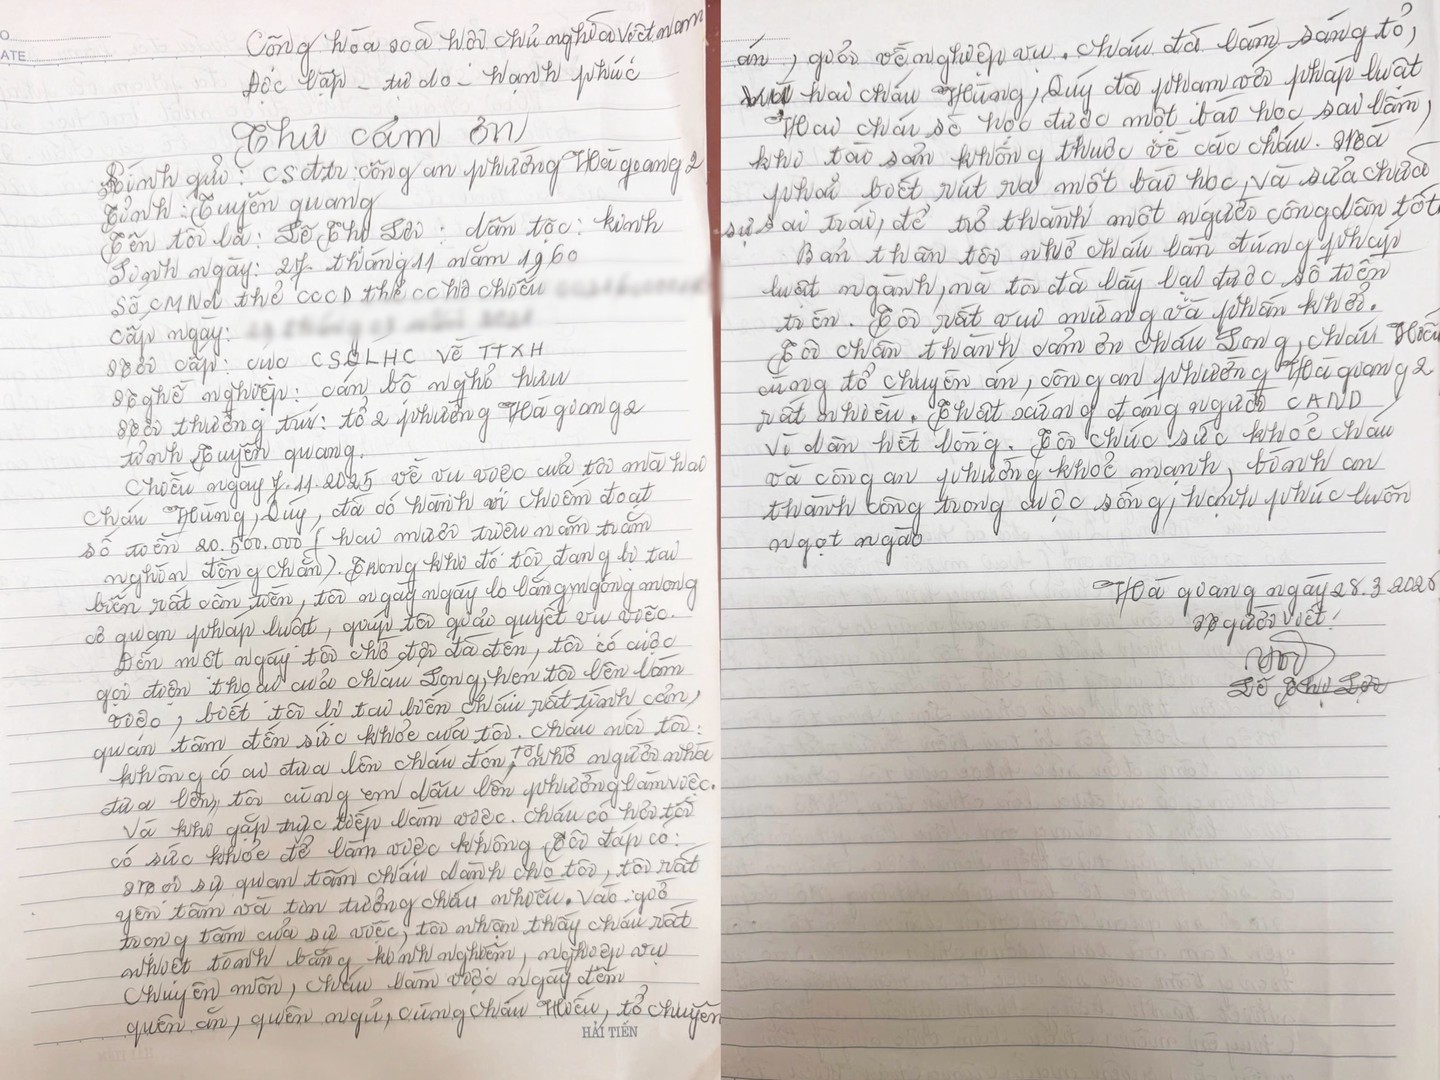 Cộng hòa xã hội chủ nghĩa việt nam
Độc lập - tự do - hạnh phúc
Thư cảm ơn
Kính gửi: CSđtr: công an phường Hà giang 2
Tỉnh: Tuyên quang
Tên tôi là: Lê Thị Lợi: dân tộc: kinh
Sinh ngày: 27 tháng 11 năm 1960
Số CMNd thẻ CCCD thẻ CC hộ chiếu
Cấp ngày:
Nơi cấp: cục CSQLHC Về TTXH
Nghề nghiệp: cán bộ nghỉ hưu
Nơi thường trú: tổ 2 phường Hà giang 2
tỉnh Tuyên quang.
Chiều ngày 7.11.2025 về vụ việc của tôi mà hai
cháu Hùng, Quý, đã có hành vi chiếm đoạt
số tiền 20.500.000 (hai mươi triệu năm trăm
nghìn đồng chẵn). Trong khi đó tôi đang bị tai
biến rất cần tiền, tôi ngày ngày lo lắng ngóng mong
cơ quan pháp luật, giúp tôi giải quyết vụ việc.
Đến một ngày tôi chờ đợi đã đến, tôi có cuộc
gọi điện thoại của cháu Long, hẹn tôi lên làm
việc, biết tôi bị tai biến cháu rất tình cảm,
quan tâm đến sức khỏe của tôi. Cháu nói tôi:
không có ai đưa lên cháu đón, tôi nhờ người nhà
đưa lên, tôi cùng em dâu lên phường làm việc.
Và khi gặp trực tiếp làm việc. Cháu có hỏi tôi
có sức khỏe để làm việc không Tôi đáp có:
Mọi sự quan tâm cháu dành cho tôi, tôi rất
yên tâm và tin tưởng cháu nhiều. Vào giờ
trọng tâm của sự việc, tôi nhận thấy cháu rất
nhiệt tình bằng kinh nghiệm, nghiệp vụ
chuyên môn, cháu làm việc ngày đêm
quên ăn, quên ngủ, cùng cháu Hiếu, tổ chuyên
HẢI TIẾN
án, giỏi về nghiệp vụ. Cháu đã làm sáng tỏ,
hai cháu Hùng, Quý đã phạm với pháp luật
Hai cháu sẽ học được một bài học sai lầm,
khi tài sản không thuộc về các cháu. Mà
phải biết rút ra một bài học, và sửa chữa
sự sai trái, để trở thành một người công dân tốt
Bản thân tôi nhờ cháu làm đúng pháp
luật ngành, mà tôi đã lấy lại được số tiền
trên. Tôi rất vui mừng và phấn khởi.
Tôi chân thành cảm ơn cháu Long, cháu Hiếu
cùng tổ chuyên án, công an phường Hà giang 2
rất nhiều. Thật xứng đáng người CAND
vì dân hết lòng. Tôi chúc sức khỏe cháu
và công an phường khỏe mạnh, bình an
thành công trong cuộc sống, hạnh phúc luôn
ngọt ngào
Hà giang ngày 28.3.2026
Người viết:
Lê Thị Lợi